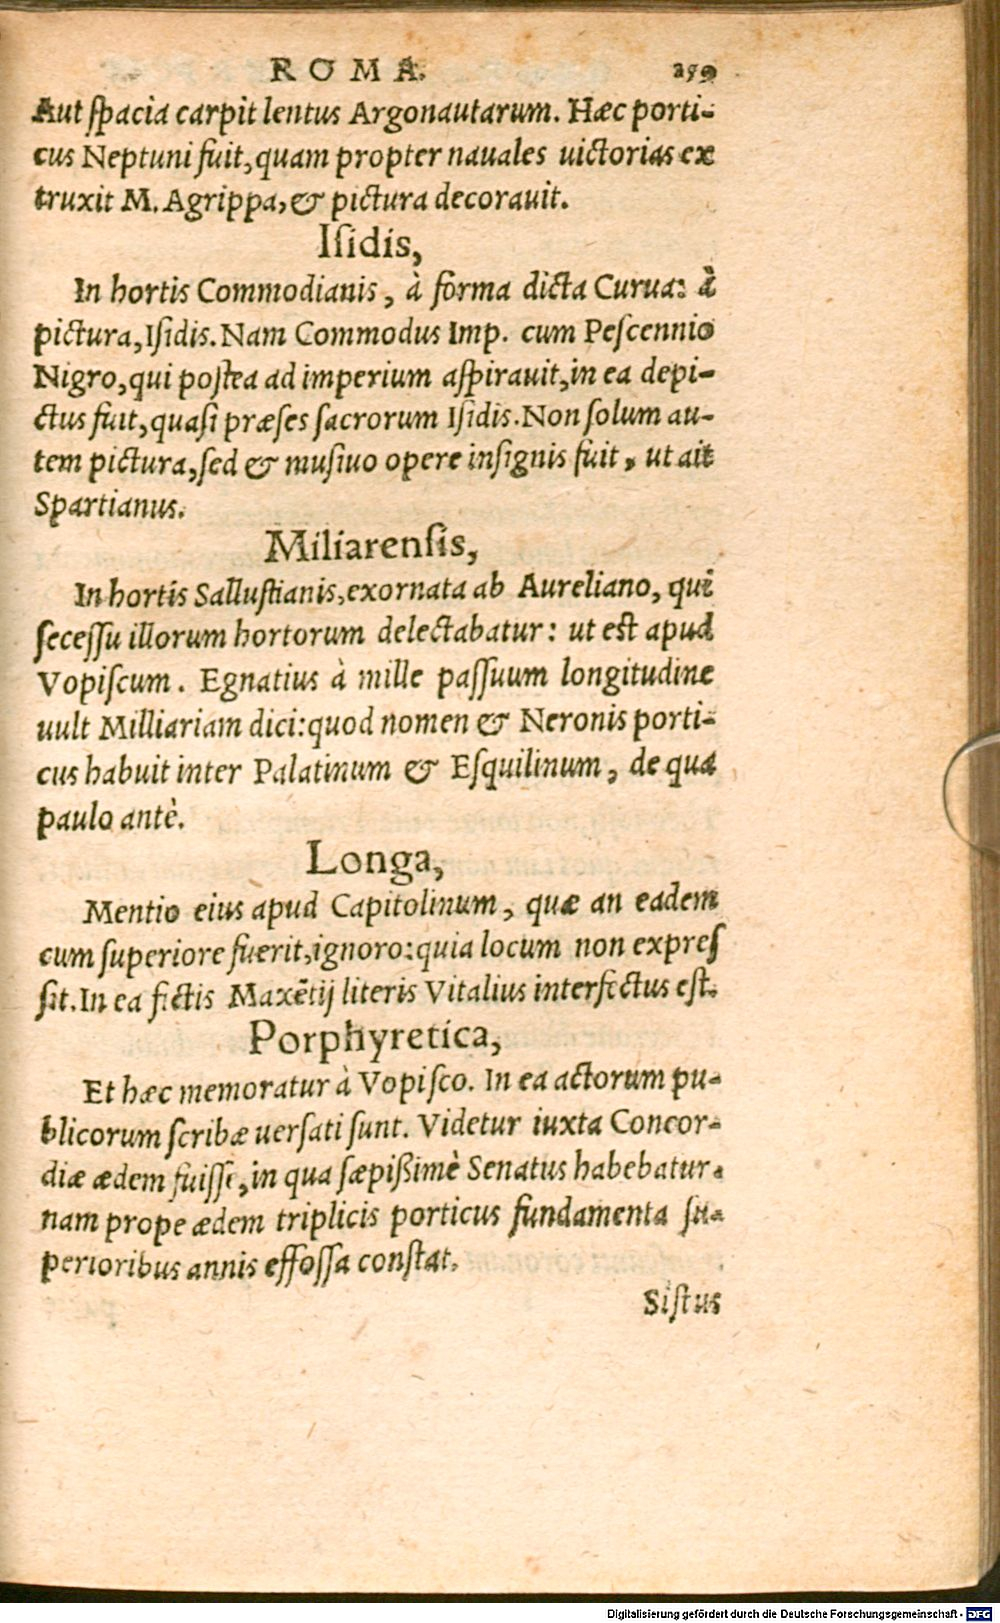 ROMA. 259
Aut ſpacia carpit lentus Argonautarum. Hæc porti-
cus Neptuni fuit, quam propter nauales uictorias ex
truxit M. Agrippa, & pictura decorauit.
Iſidis,
In hortis Commodianis, à forma dicta Curua: à
pictura, Iſidis. Nam Commodus Imp. cum Peſcennio
Nigro, qui poſtea ad imperium aſpirauit, in ea depi-
ctus fuit, quaſi præſes ſacrorum Iſidis. Non ſolum au-
tem pictura, ſed & muſiuo opere inſignis fuit, ut ait
Spartianus.
Miliarenſis,
In hortis Salluſtianis, exornata ab Aureliano, qui
ſeceſſu illorum hortorum delectabatur: ut eſt apud
Vopiſcum. Egnatius à mille paſſuum longitudine
uult Milliariam dici: quod nomen & Neronis porti-
cus habuit inter Palatinum & Eſquilinum, de qua
paulo antè.
Longa,
Mentio eius apud Capitolinum, quæ an eadem
cum ſuperiore fuerit, ignoro: quia locum non expreſ
ſit. In ea fictis Maxẽtij literis Vitalius interfectus eſt.
Porphyretica,
Et hæc memoratur à Vopiſco. In ea actorum pu-
blicorum ſcribæ uerſati ſunt. Videtur iuxta Concor-
diæ ædem fuiſſe, in qua ſæpißimè Senatus habebatur.
nam prope ædem triplicis porticus fundamenta ſu-
perioribus annis effoſſa conſtat.
Siſtus
Digitalisierung gefördert durch die Deutsche Forschungsgemeinschaft - DFG